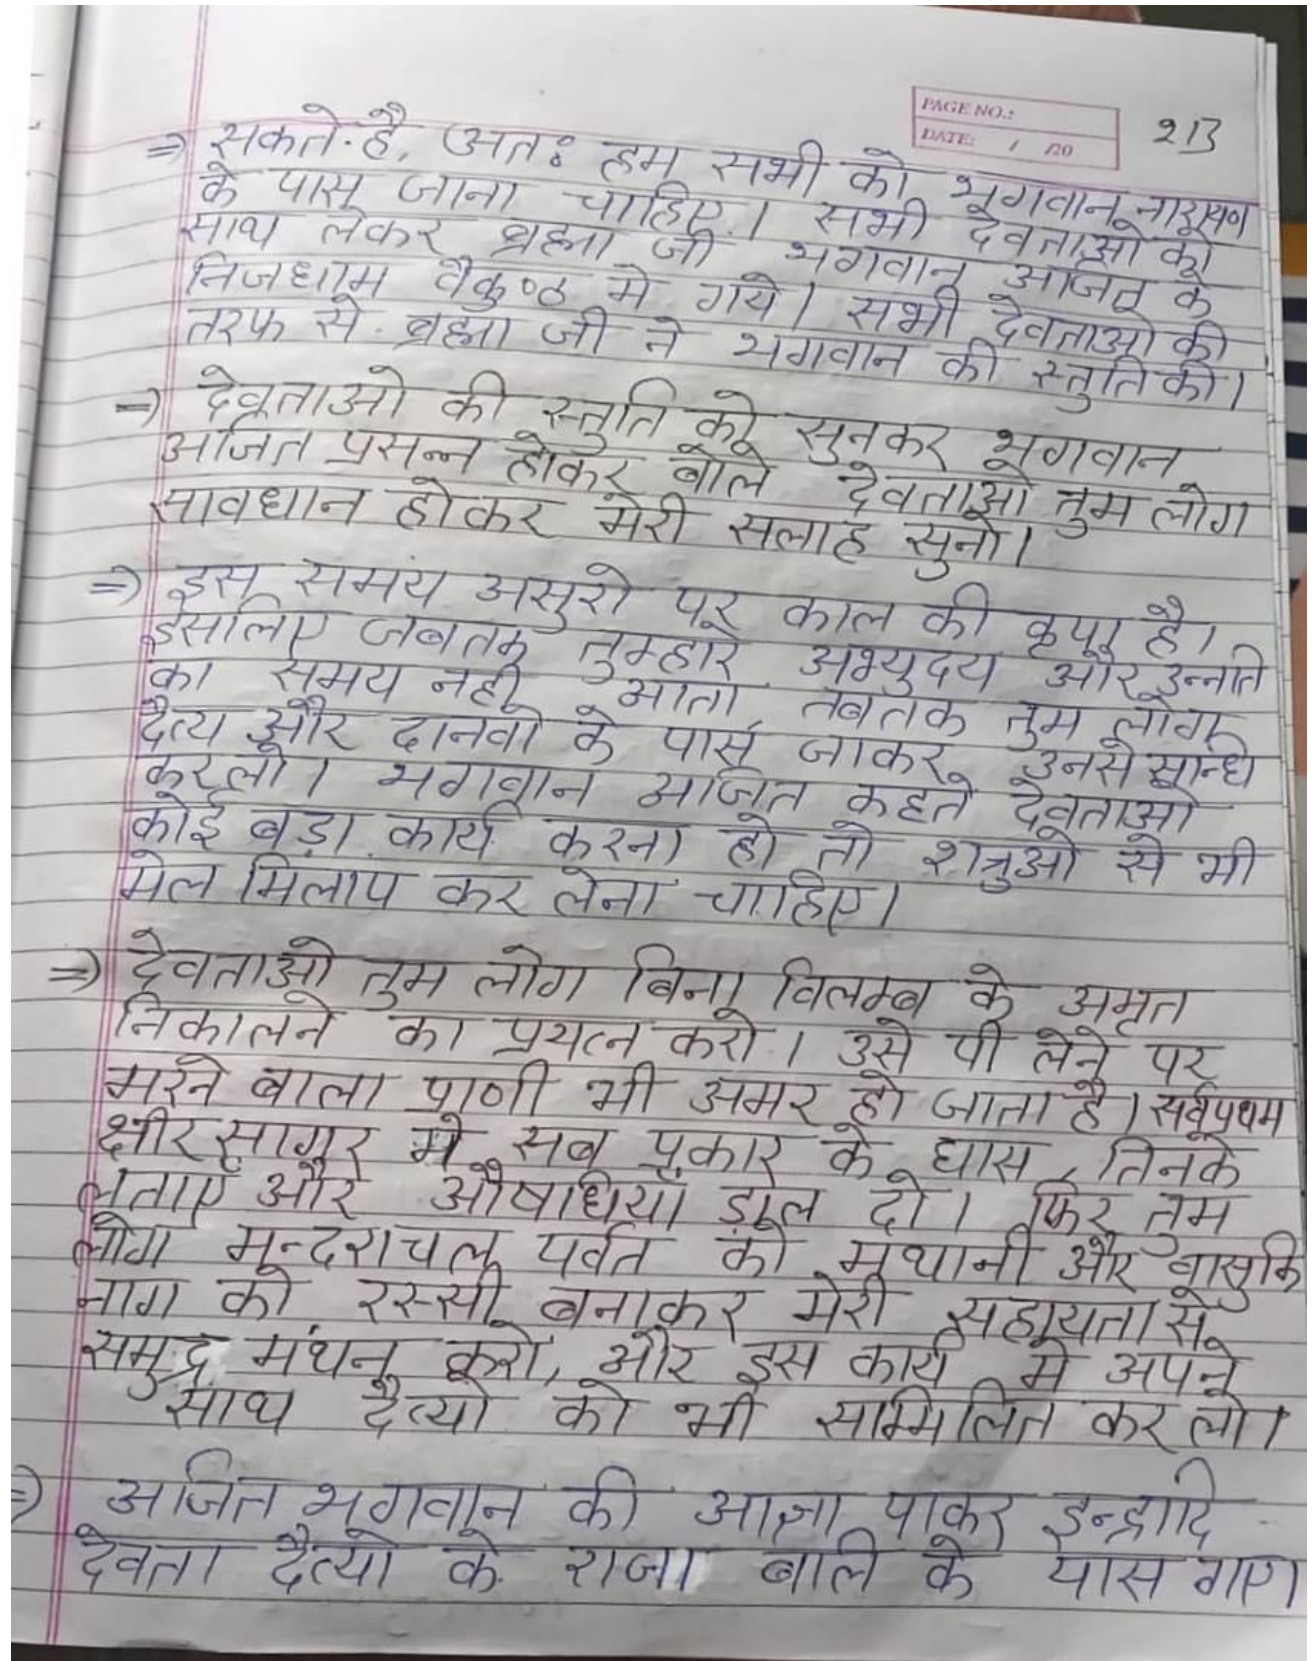 PAGE NO.:
DATE: / /20
213
⇒ सकते है, अतः हम सभी को भगवान नारायण
के पास जाना चाहिए। सभी देवताओ को
साथ लेकर ब्रह्मा जी भगवान अजित के
निजधाम वैकुण्ठ मे गये। सभी देवताओ की
तरफ से ब्रह्मा जी ने भगवान की स्तुति की।
⇒ देवताओ की स्तुति को सुनकर भगवान
अजित प्रसन्न होकर बोले देवताओ तुम लोग
सावधान होकर मेरी सलाह सुनो।
⇒ इस समय असुरो पर काल की कृपा है।
इसलिए जबतक तुम्हारे अभ्युदय और उन्नति
का समय नही आता, तबतक तुम लोग
दैत्य और दानवो के पास जाकर उनसे सन्धि
करलो। भगवान अजित कहते देवताओ
कोई बड़ा कार्य करना हो तो शत्रुओ से भी
मेल मिलाप कर लेना चाहिए।
⇒ देवताओ तुम लोग बिना विलम्ब के अमृत
निकालने का प्रयत्न करो। उसे पी लेने पर
मरने बाला प्राणी भी अमर हो जाता है। सर्वप्रथम
क्षीर सागर मे सब प्रकार के घास, तिनके
लताएं और औषधियाँ ड़ाल दो। फिर तुम
लोग मन्दराचल पर्वत को मथानी और वासुकि
नाग को रस्सी बनाकर मेरी सहायता से
समुद्र मंथन करो, और इस कार्य मे अपने
साथ दैत्यो को भी सम्मिलित कर लो।
⇒ अजित भगवान की आज्ञा पाकर इन्द्रादि
देवता दैत्यो के राजा बलि के पास गए।